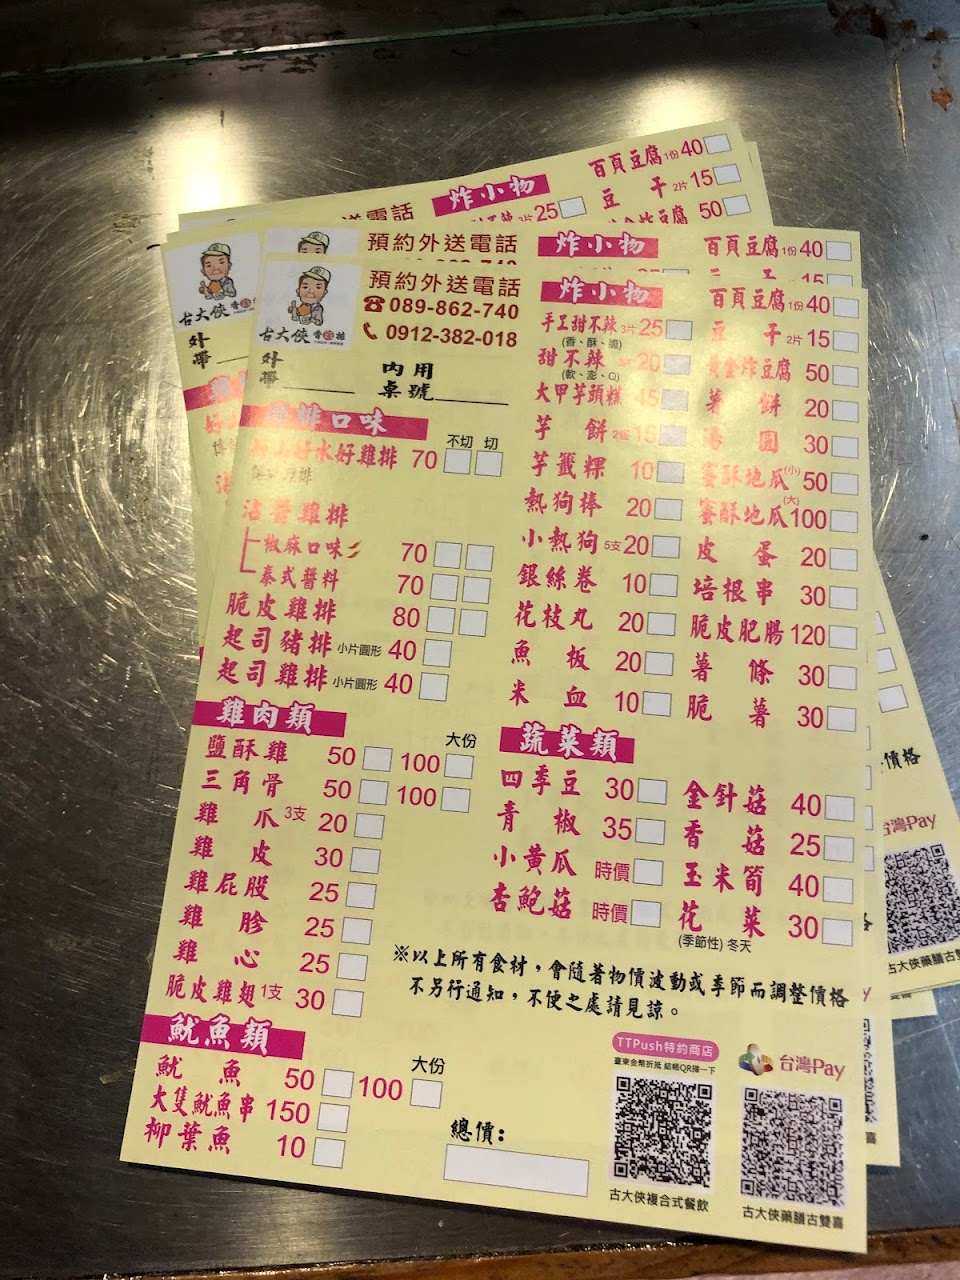 古大俠香雞排
預約外送電話
089-862-740
0912-382-018
外帶
內用
桌號
雞排口味
不切 切
好山好水好雞排 70
沾醬雞排
椒麻口味 70
泰式醬料 70
脆皮雞排 80
起司豬排 小片圓形 40
起司雞排 小片圓形 40
雞肉類
大份
鹽酥雞 50 100
三角骨 50 100
雞爪 3支 20
雞皮 30
雞屁股 25
雞胗 25
雞心 25
脆皮雞翅 1支 30
魷魚類
大份
魷魚 50 100
大隻魷魚串 150
柳葉魚 10
炸小物
手工甜不辣 3片 25
(香、酥、脆)
甜不辣 20
(軟、澎、Q)
大甲芋頭糕 45
芋餅 15
芋籤粿 10
熱狗棒 20
小熱狗 5支 20
銀絲卷 10
花枝丸 20
魚板 20
米血 10
百頁豆腐 1份 40
豆干 2片 15
黃金炸豆腐 50
薯餅 20
湯圓 30
蜜酥地瓜(小) 50
蜜酥地瓜(大) 100
皮蛋 20
培根串 30
脆皮肥腸 120
薯條 30
脆薯 30
蔬菜類
四季豆 30
青椒 35
小黃瓜 時價
杏鮑菇 時價
金針菇 40
香菇 25
玉米筍 40
花菜 30
(季節性) 冬天
※以上所有食材，會隨著物價波動或季節而調整價格
不另行通知，不便之處請見諒。
總價:
TTPush特約商店
臺東金幣折抵 結帳QR掃一下
古大俠複合式餐飲
台灣Pay
古大俠藥膳古雙喜
預約外送電話
炸小物
百頁豆腐 1份 40
炸小物
3片 25
百頁豆腐 1份 40
豆干 2片 15
50
送電話
古大俠
外帶
價格
台灣Pay
古大俠藥膳古雙